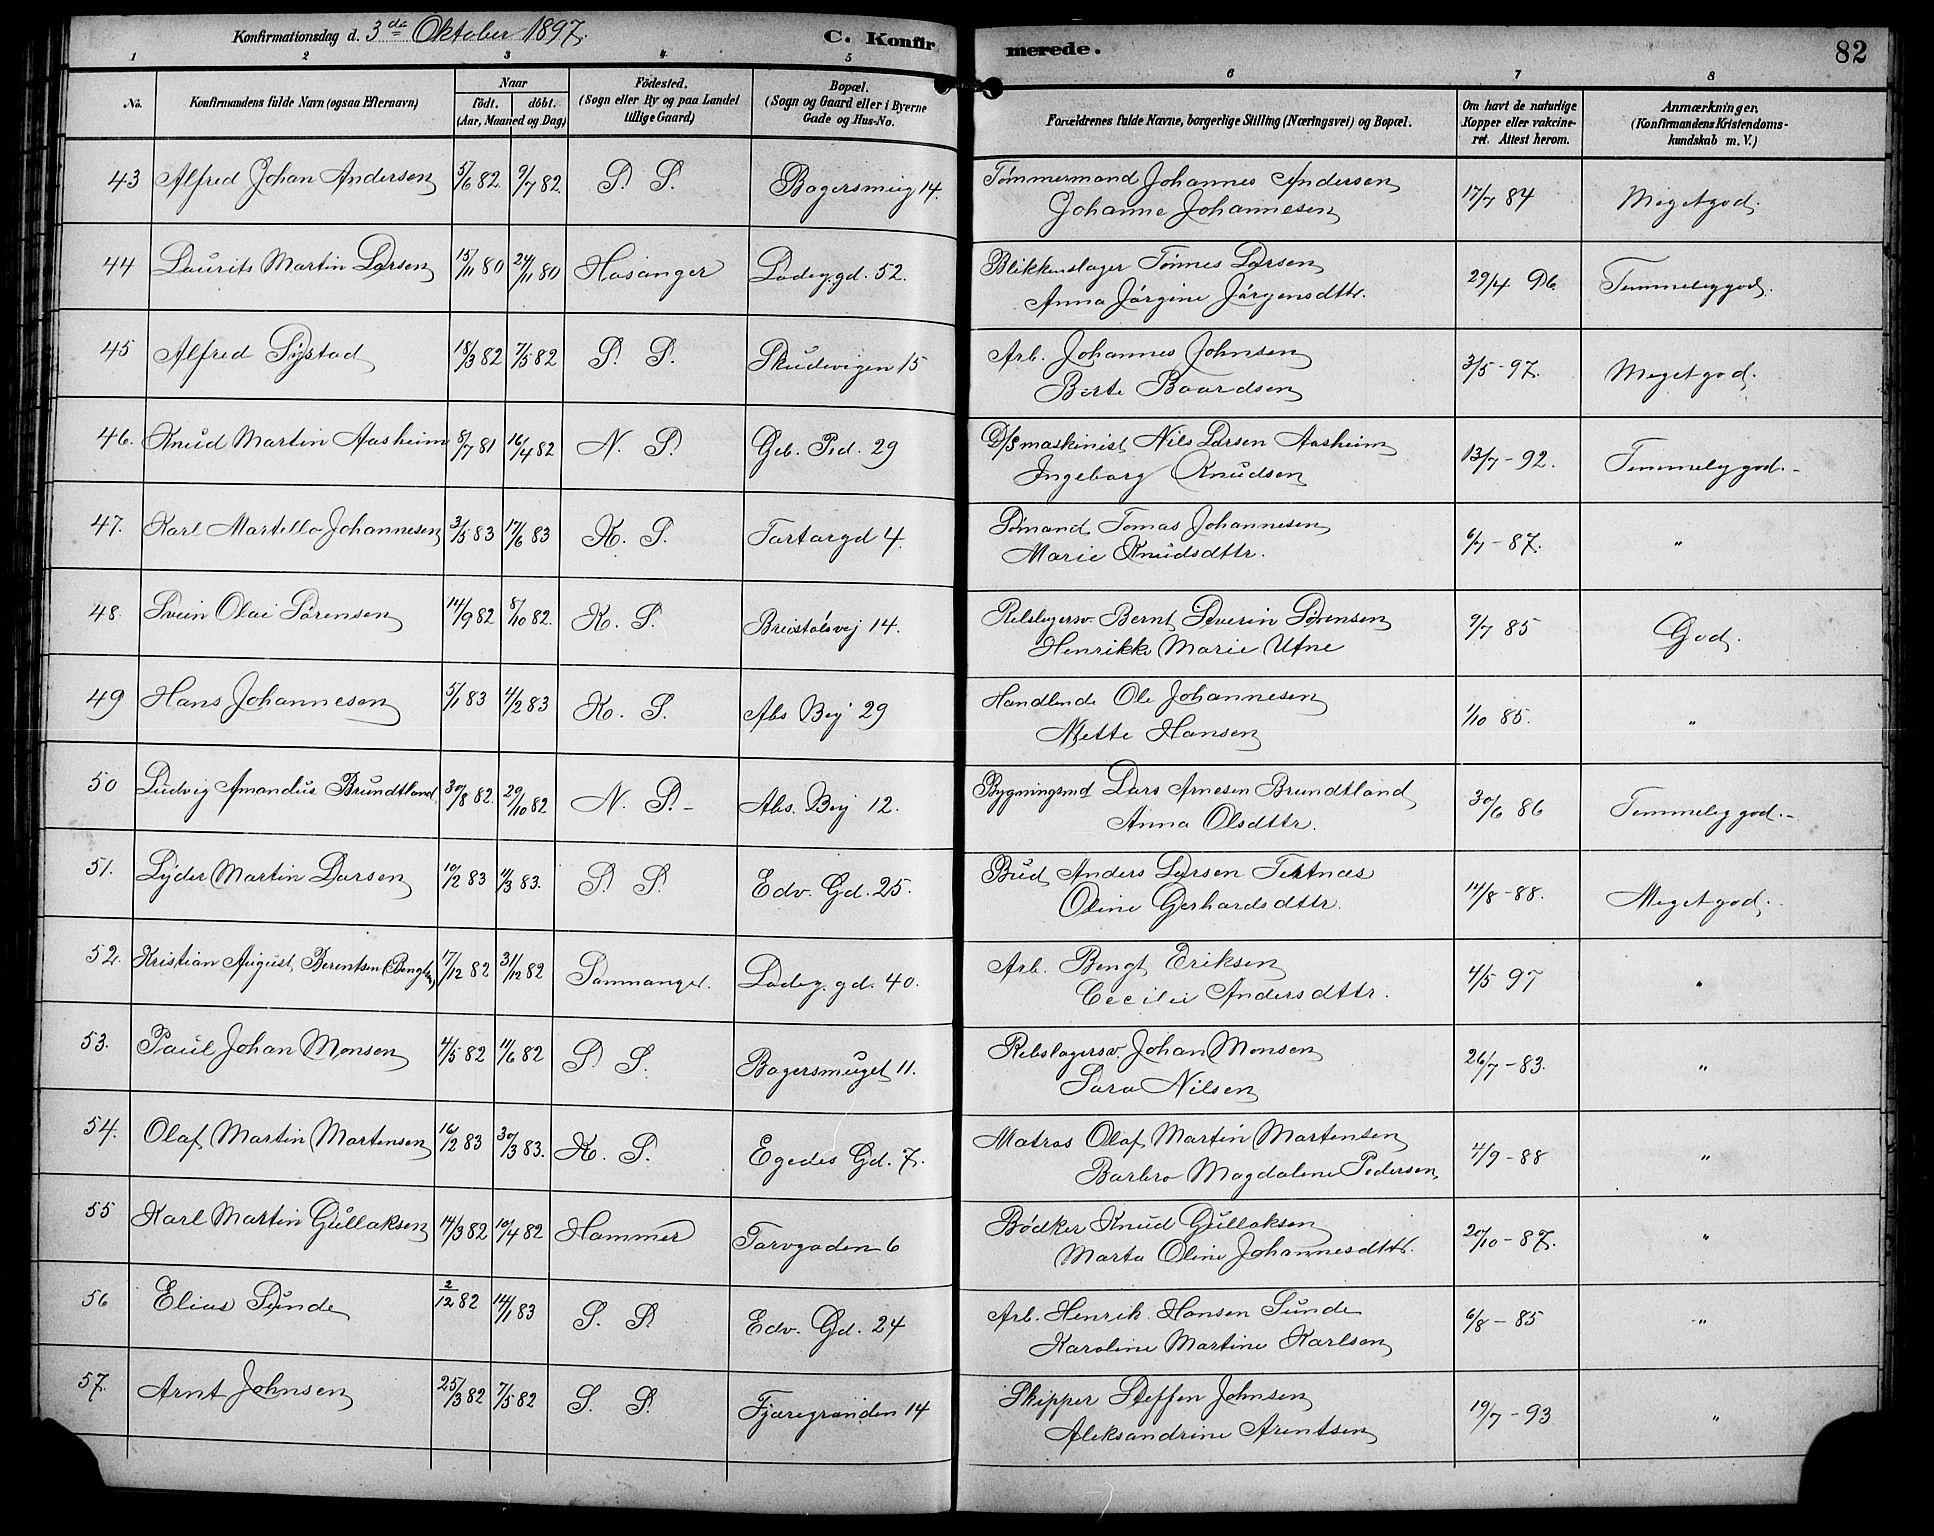 Konfirmationsdag d. 3de Oktober 1897.
C. Konfirmerede.
82
1 2 3 4 5 6 7 8
No.
Konfirmandens fulde Navn (ogsaa Efternavn)
Naar
födt. döbt.
(Aar, Maaned og Dag)
Födested.
(Sogn eller By og paa Landet
tillige Gaard)
Bopæl.
(Sogn og Gaard eller i Byerne
Gade og Hus-No.
Forældrenes fulde Navne, borgerlige Stilling (Næringsvei) og Bopæl.
Om havt de naturlige
Kopper eller vakcine-
ret. Attest herom.
Anmærkninger.
(Konfirmandens Kristendoms-
kundskab m. V.)
43 Alfred Johan Andersen 5/6 82 9/7 82. S. S. Bagersmug 14. Tömmermand Johannes Andersen 17/7 84 Megetgod.
Johanne Johannesen
44 Laurits Martin Larsen 15/11 80 24/11 80 Hosanger Ladeg.gd. 52. Blikkenslager Tönnes Larsen 29/4 96 Temmeliggod.
Anna Jörgine Jörgensdttr.
45 Alfred Systad 18/3 82 7/5 82 S. S. Skudevigen 15 Arb. Johannes Johnsen 3/5 - 97. Megetgod.
Berte Baardsen
46. Knud Martin Aasheim 8/7 81 16/4 82 N. S. Geb. Ped. 29 D/S maskinist Nils Larsen Aasheim 13/7 - 92. Temmeliggod.-
Ingeborg Knudsen
47. Karl Martello Johannesen 3/5 83 17/6 83 K. S. Tartargd 4. Sömand Tomas Johannesen 6/7 - 87. "
Marie Knudsdttr.
48. Svein Olai Sörensen 14/9 82 8/10 82. K. S. Breistölsvej 14. Rebslagersv. Bernt Severin Sörensen 9/7 85 God.
Henrikke Marie Utne
49 Hans Johannesen 5/1 83 4/2 83 K. S. Abs Berj 29 Handlende Ole Johannesen 1/10 85. "
Mette Hansen
50 Ludvig Amandus Brundtland 30/8 82. 29/10 82 N. S.- Abs. Berj 12. Bygningsmd Lars Arnesen Brundtland 30/6 86 Temmeliggod.-
Anna Olsdttr.
51. Lyder Martin Larsen 10/2 83 11/3 83. S. S. Edv. Gd. 25. Bud Anders Larsen Tertnæs 14/8 - 88. Megetgod.
Oline Gerhardsdttr.
52. Kristian August Berentsen (Bengtsen) 17/12 82 31/12 82 Sammanger. Ladeg.gd. 40. Arb. Bengt Eriksen 4/5 97 "
Cecilie Andersdttr.
53. Paul Johan Monsen 4/5 82 11/6 82 S. S. Bagersmuget 11. Rebslagersv. Johan Monsen 26/7 - 83. "
Sara Nilsen
54. Olaf Martin Martensen 16/2 83 30/3 83. K. S. Egedes Gd. 7. Matros Olaf Martin Martensen 4/9 - 88 "
Barbro Magdalene Pedersen
55 Karl Martin Gullaksen 14/3 82 10/4 82 Hammer Torvgaden 6 Bödker Knud Gullaksen 20/10 - 87. "
Marta Oline Johannesdttr.
56 Elias Sunde 2/12 82 14/1 83 S. S. Edv. Gd. 24 Arb. Henrik Hansen Sunde 6/8 - 85 "
Karoline Martine Karlsen
57. Arnt Johnsen 25/3 82 7/5 82 S. S. Fjæregranden 14 Skipper Steffen Johnsen 19/7 - 93 "
Aleksandrine Arentsen